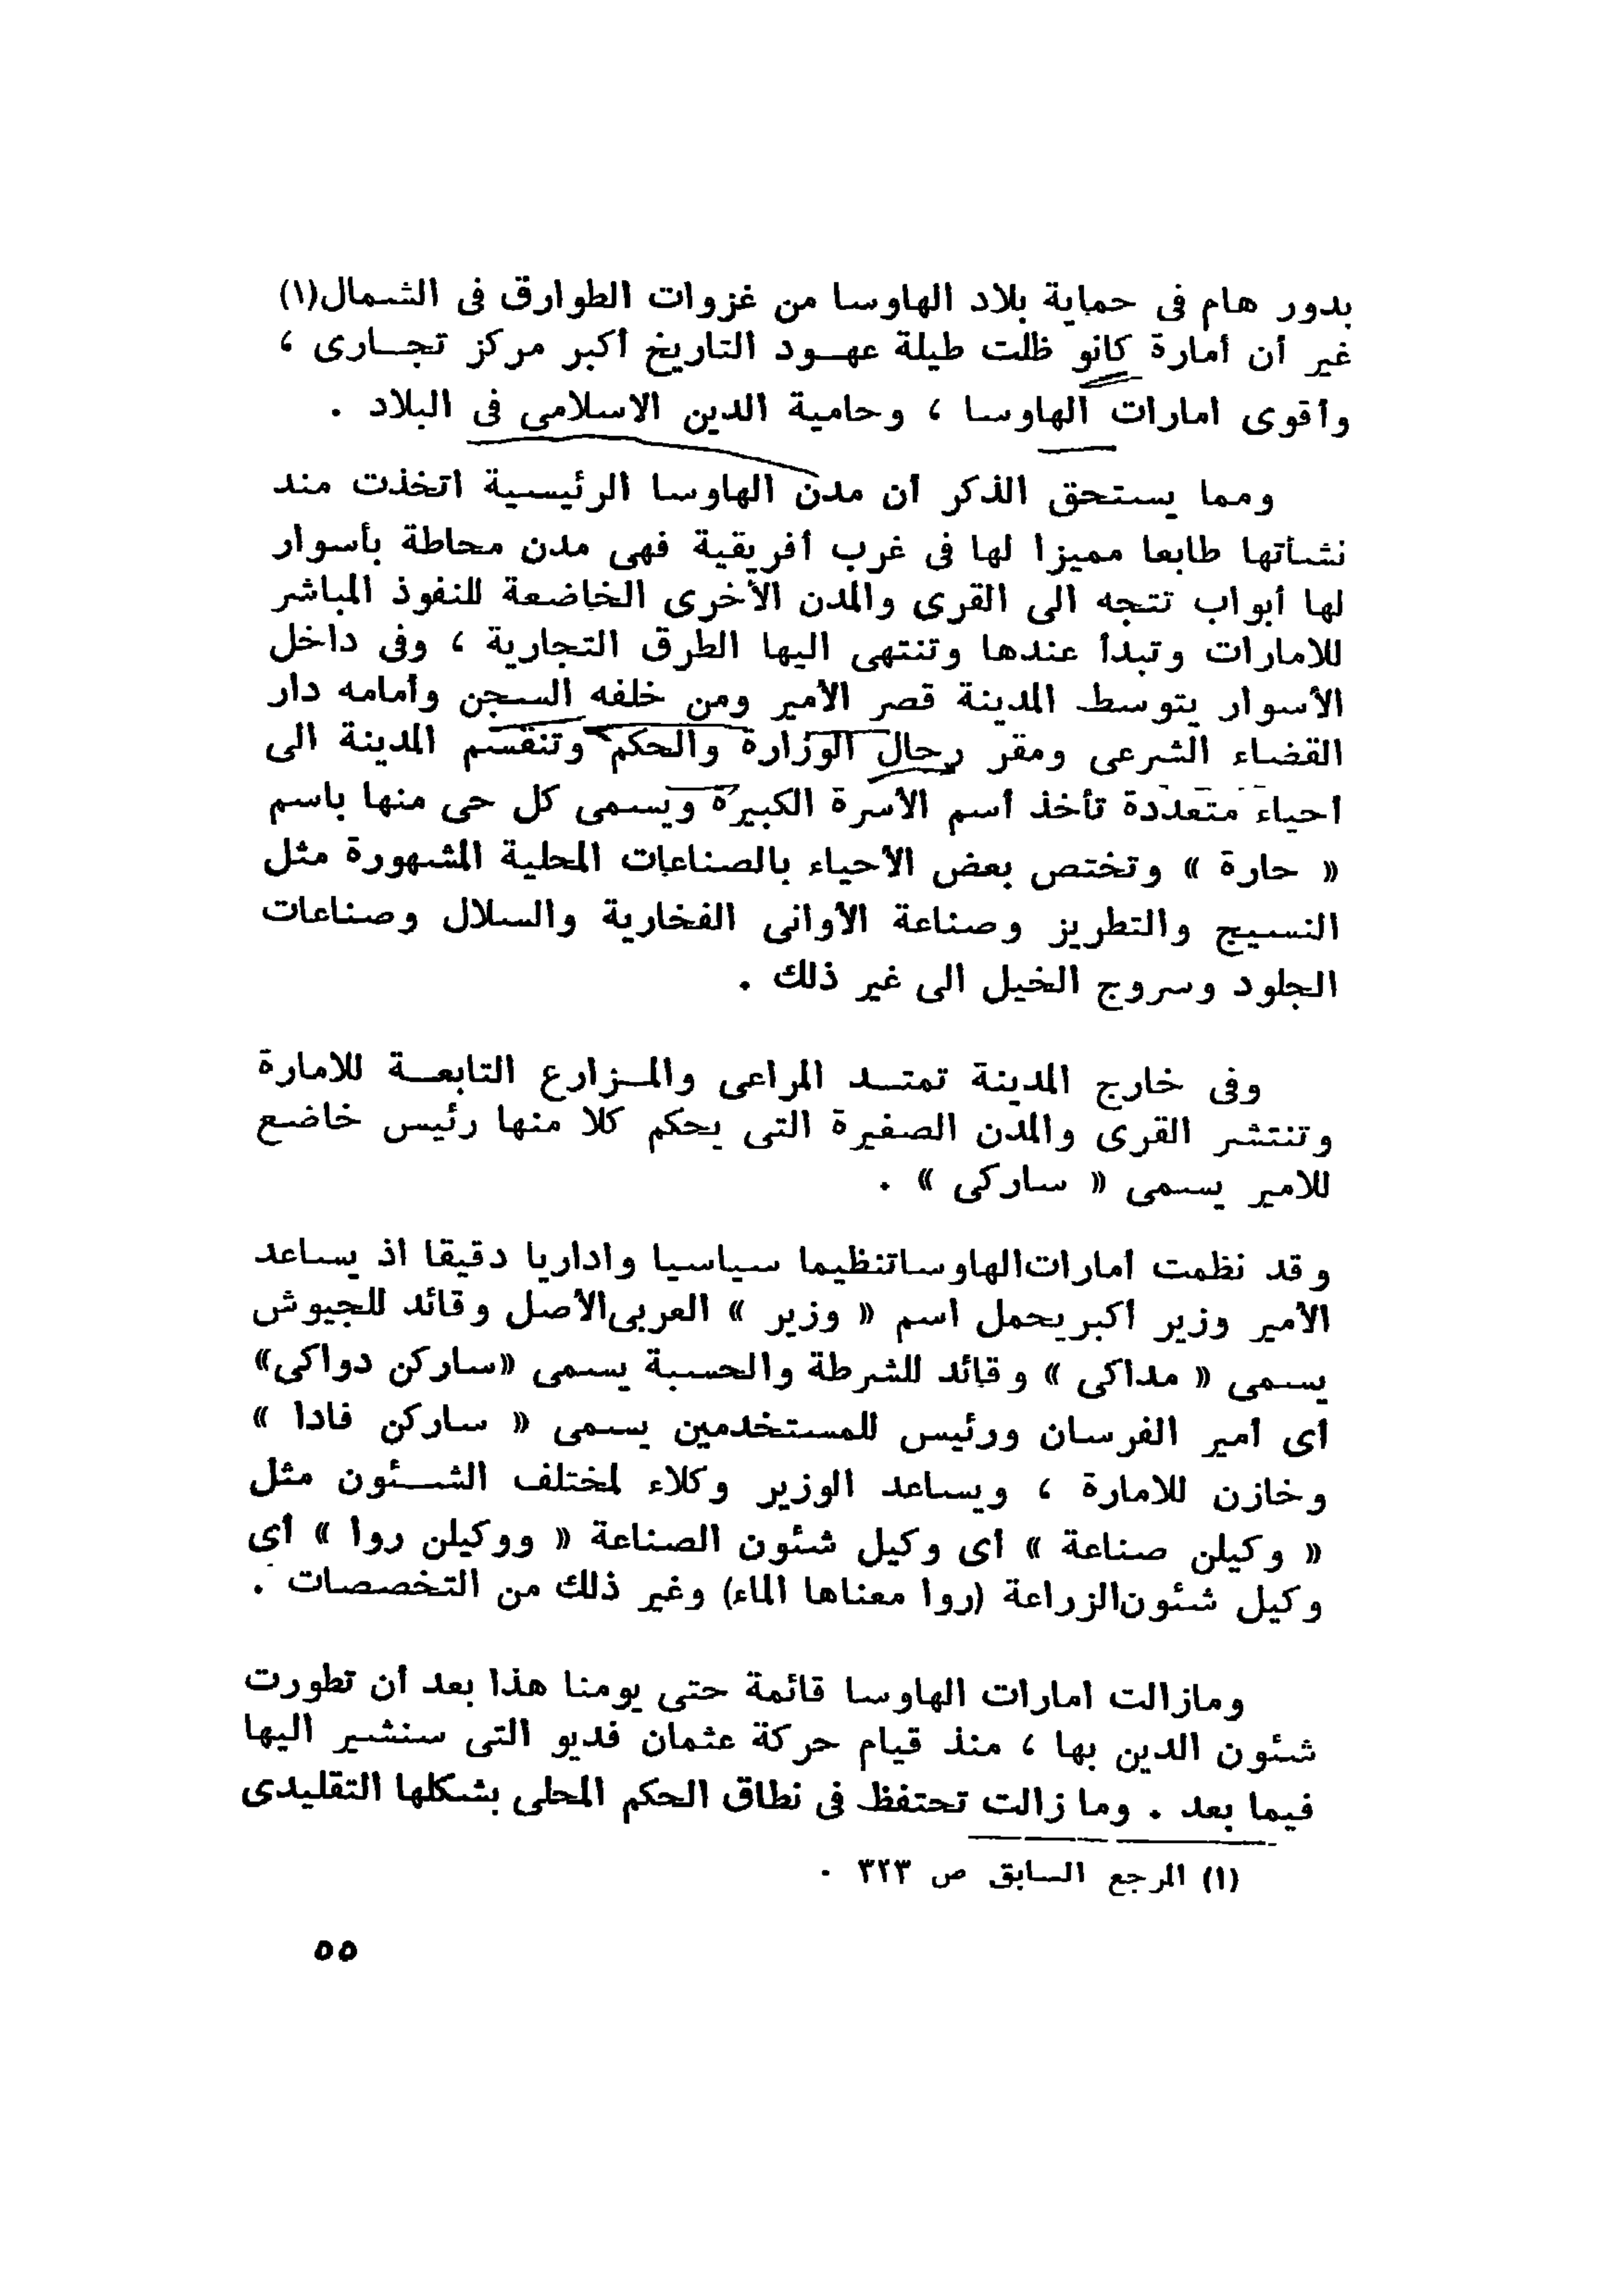 بدور هام فى حماية بلاد الهاوسا من غزوات الطوارق فى الشمال(١)
غير أن أمارة كانو ظلت طيلة عهود التاريخ أكبر مركز تجارى ،
وأقوى امارات الهاوسا ، وحامية الدين الاسلامى فى البلاد .
ومما يستحق الذكر أن مدن الهاوسا الرئيسية اتخذت منذ
نشأتها طابعا مميزا لها فى غرب أفريقية فهى مدن محاطة بأسوار
لها أبواب تتجه الى القرى والمدن الأخرى الخاضعة للنفوذ المباشر
للامارات وتبدأ عندها وتنتهى اليها الطرق التجارية ، وفى داخل
الأسوار يتوسط المدينة قصر الأمير ومن خلفه السجن وأمامه دار
القضاء الشرعى ومقر رجال الوزارة والحكم وتنقسم المدينة الى
احياء متعددة تأخذ أسم الأسرة الكبيرة ويسمى كل حى منها باسم
« حارة » وتختص بعض الأحياء بالصناعات المحلية المشهورة مثل
النسيج والتطريز وصناعة الأوانى الفخارية والسلال وصناعات
الجلود وسروج الخيل الى غير ذلك .
وفى خارج المدينة تمتد المراعى والمزارع التابعة للامارة
وتنتشر القرى والمدن الصغيرة التى يحكم كلا منها رئيس خاضع
للامير يسمى « ساركى » .
وقد نظمت امارات الهاوسا تنظيما سياسيا واداريا دقيقا اذ يساعد
الأمير وزير أكبر يحمل اسم « وزير » العربى الأصل وقائد للجيوش
يسمى « مداكى » وقائد للشرطة والحسبة يسمى «ساركن دواكى»
أى أمير الفرسان ورئيس للمستخدمين يسمى « ساركن فادا »
وخازن للامارة ، ويساعد الوزير وكلاء لمختلف الشئون مثل
« وكيلن صناعة » أى وكيل شئون الصناعة « ووكيلن روا » أى
وكيل شئون الزراعة (روا معناها الماء) وغير ذلك من التخصصات .
ومازالت امارات الهاوسا قائمة حتى يومنا هذا بعد أن تطورت
شئون الدين بها ، منذ قيام حركة عثمان فديو التى سنشير اليها
فيما بعد . وما زالت تحتفظ فى نطاق الحكم المحلى بشكلها التقليدى
(١) المرجع السابق ص ٣٢٣ .
٥٥